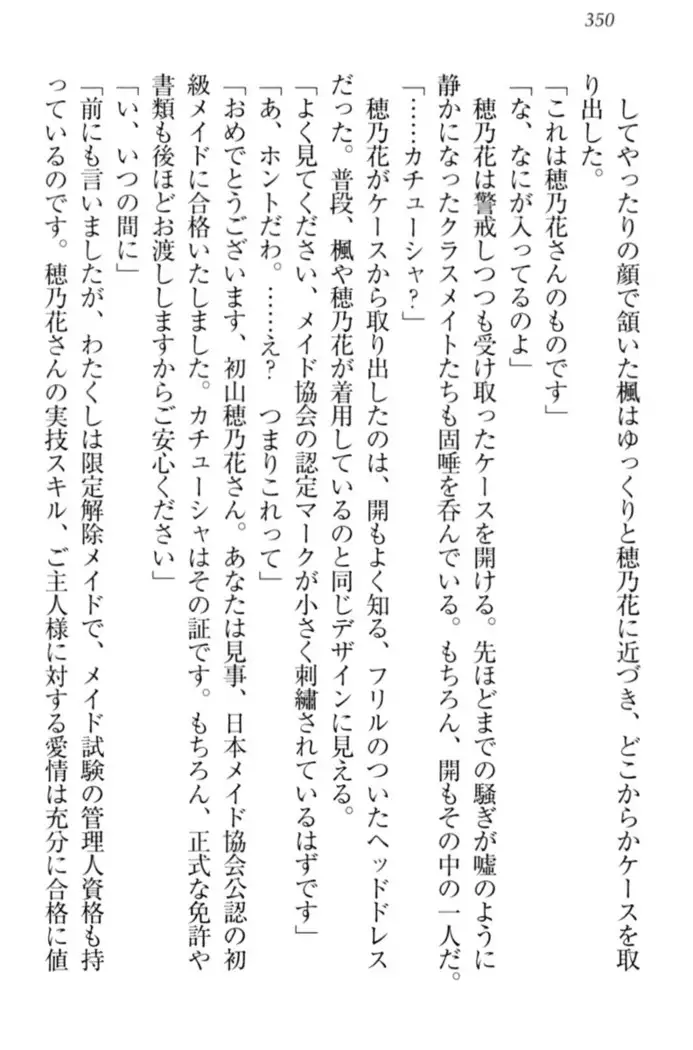 350
してやったりの顔で頷いた楓はゆっくりと穂乃花に近づき、どこからかケースを取
り出した。
「これは穂乃花さんのものです」
「な、なにが入ってるのよ」
穂乃花は警戒しつつも受け取ったケースを開ける。先ほどまでの騒ぎが嘘のように
静かになったクラスメイトたちも固唾を呑んでいる。もちろん、開もその中の一人だ。
「……カチューシャ?」
穂乃花がケースから取り出したのは、開もよく知る、フリルのついたヘッドドレス
だった。普段、楓や穂乃花が着用しているのと同じデザインに見える。
「よく見てください、メイド協会の認定マークが小さく刺繡されているはずです」
「あ、ホントだわ。……え?　つまりこれって」
「おめでとうございます、初山穂乃花さん。あなたは見事、日本メイド協会公認の初
級メイドに合格いたしました。カチューシャはその証です。もちろん、正式な免許や
書類も後ほどお渡ししますからご安心ください」
「い、いつの間に」
「前にも言いましたが、わたくしは限定解除メイドで、メイド試験の管理人資格も持
っているのです。穂乃花さんの実技スキル、ご主人様に対する愛情は充分に合格に値